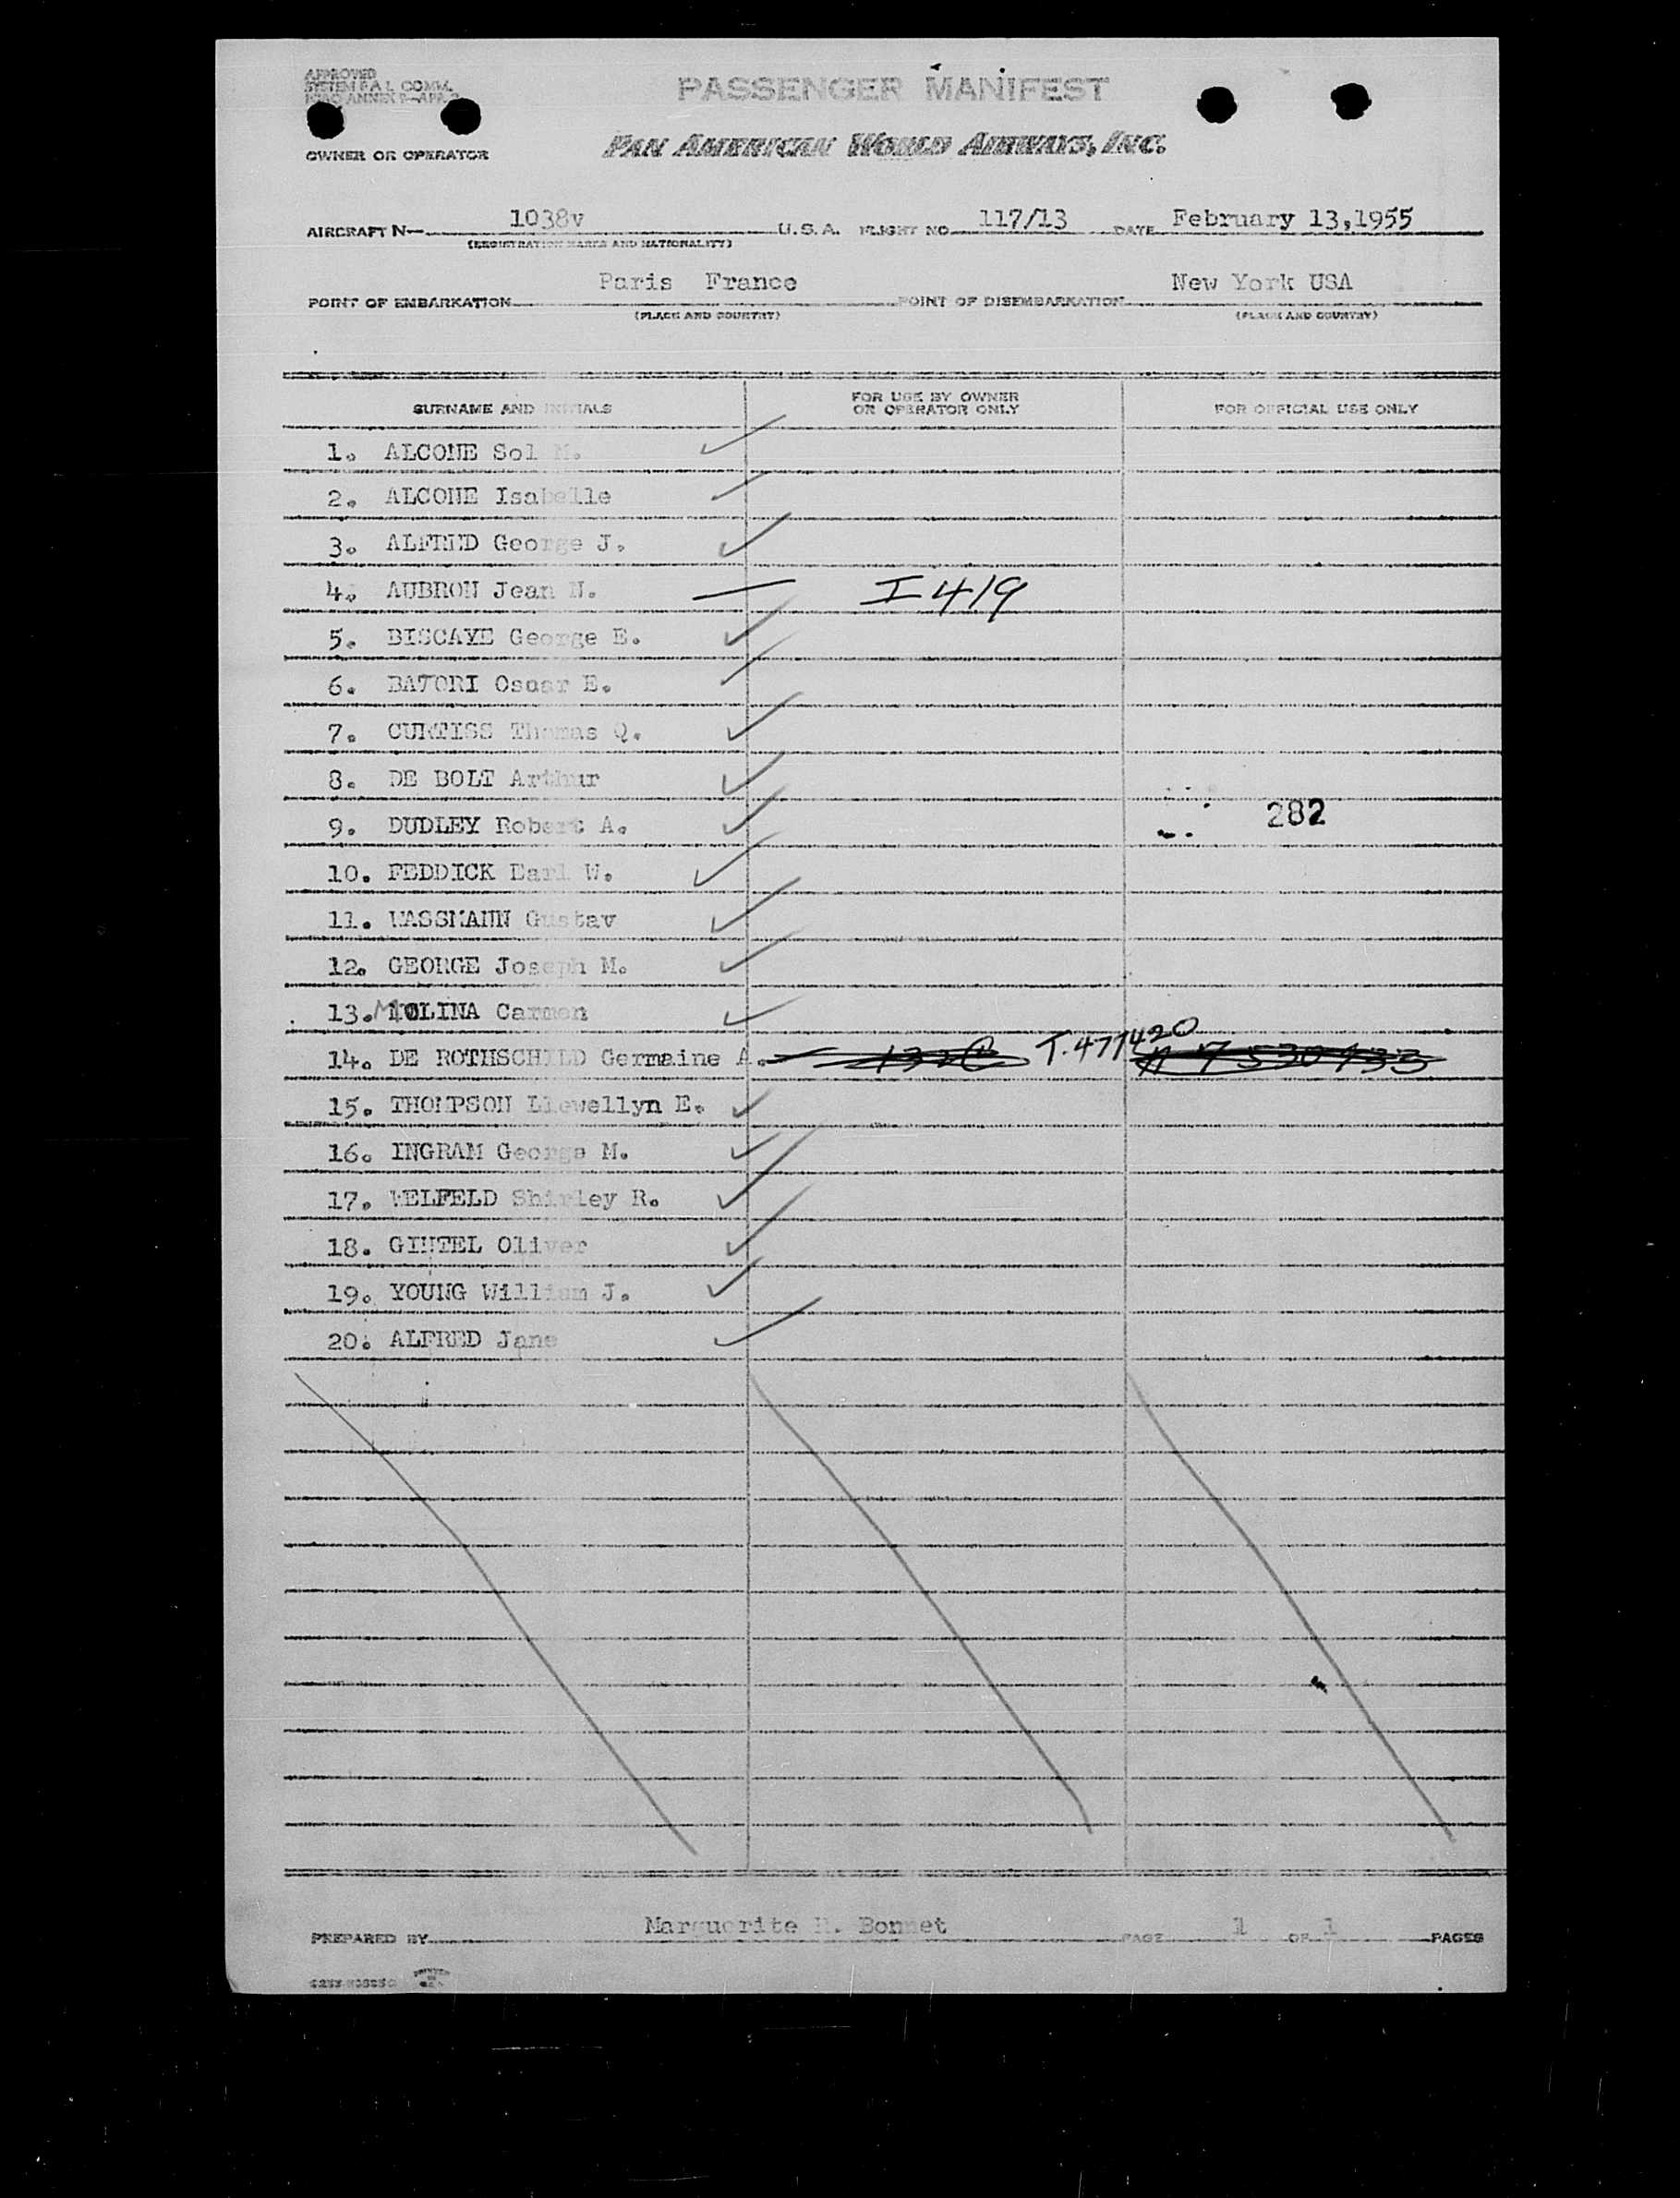 APPROVED
SYSTEM F.A.L. COMM.
ICAO ANNEX 9—APP. 3
PASSENGER MANIFEST
OWNER OR OPERATOR PAN AMERICAN WORLD AIRWAYS, INC.
AIRCRAFT N— 1038v U.S.A. FLIGHT NO 117/13 DATE February 13,1955
(REGISTRATION MARKS AND NATIONALITY)
POINT OF EMBARKATION Paris France POINT OF DISEMBARKATION New York USA
(PLACE AND COUNTRY) (PLACE AND COUNTRY)
SURNAME AND INITIALS FOR USE BY OWNER OR OPERATOR ONLY FOR OFFICIAL USE ONLY
1. ALCONE Sol M.
2. ALCONE Isabelle
3. ALFRED George J.
4. AUBRON Jean N. I 419
5. BISCAYE George E.
6. BATORI E.
7. CURTISS Thomas Q.
8. DE BOLT Arthur
9. DUDLEY Robert A. 282
10. FEDDICK Earl W.
11. WASSMANN Gustav
12. GEORGE Joseph M.
13. MOLINA Carmen
14. DE ROTHSCHILD Germaine A. T.477420
15. THOMPSON Llewellyn E.
16. INGRAM George M.
17. WELFELD Shirley R.
18. GINTEL Oliver
19. YOUNG William J.
20. ALFRED Jane
PREPARED BY Marguerite Bonnet PAGE 1 OF 1 PAGES